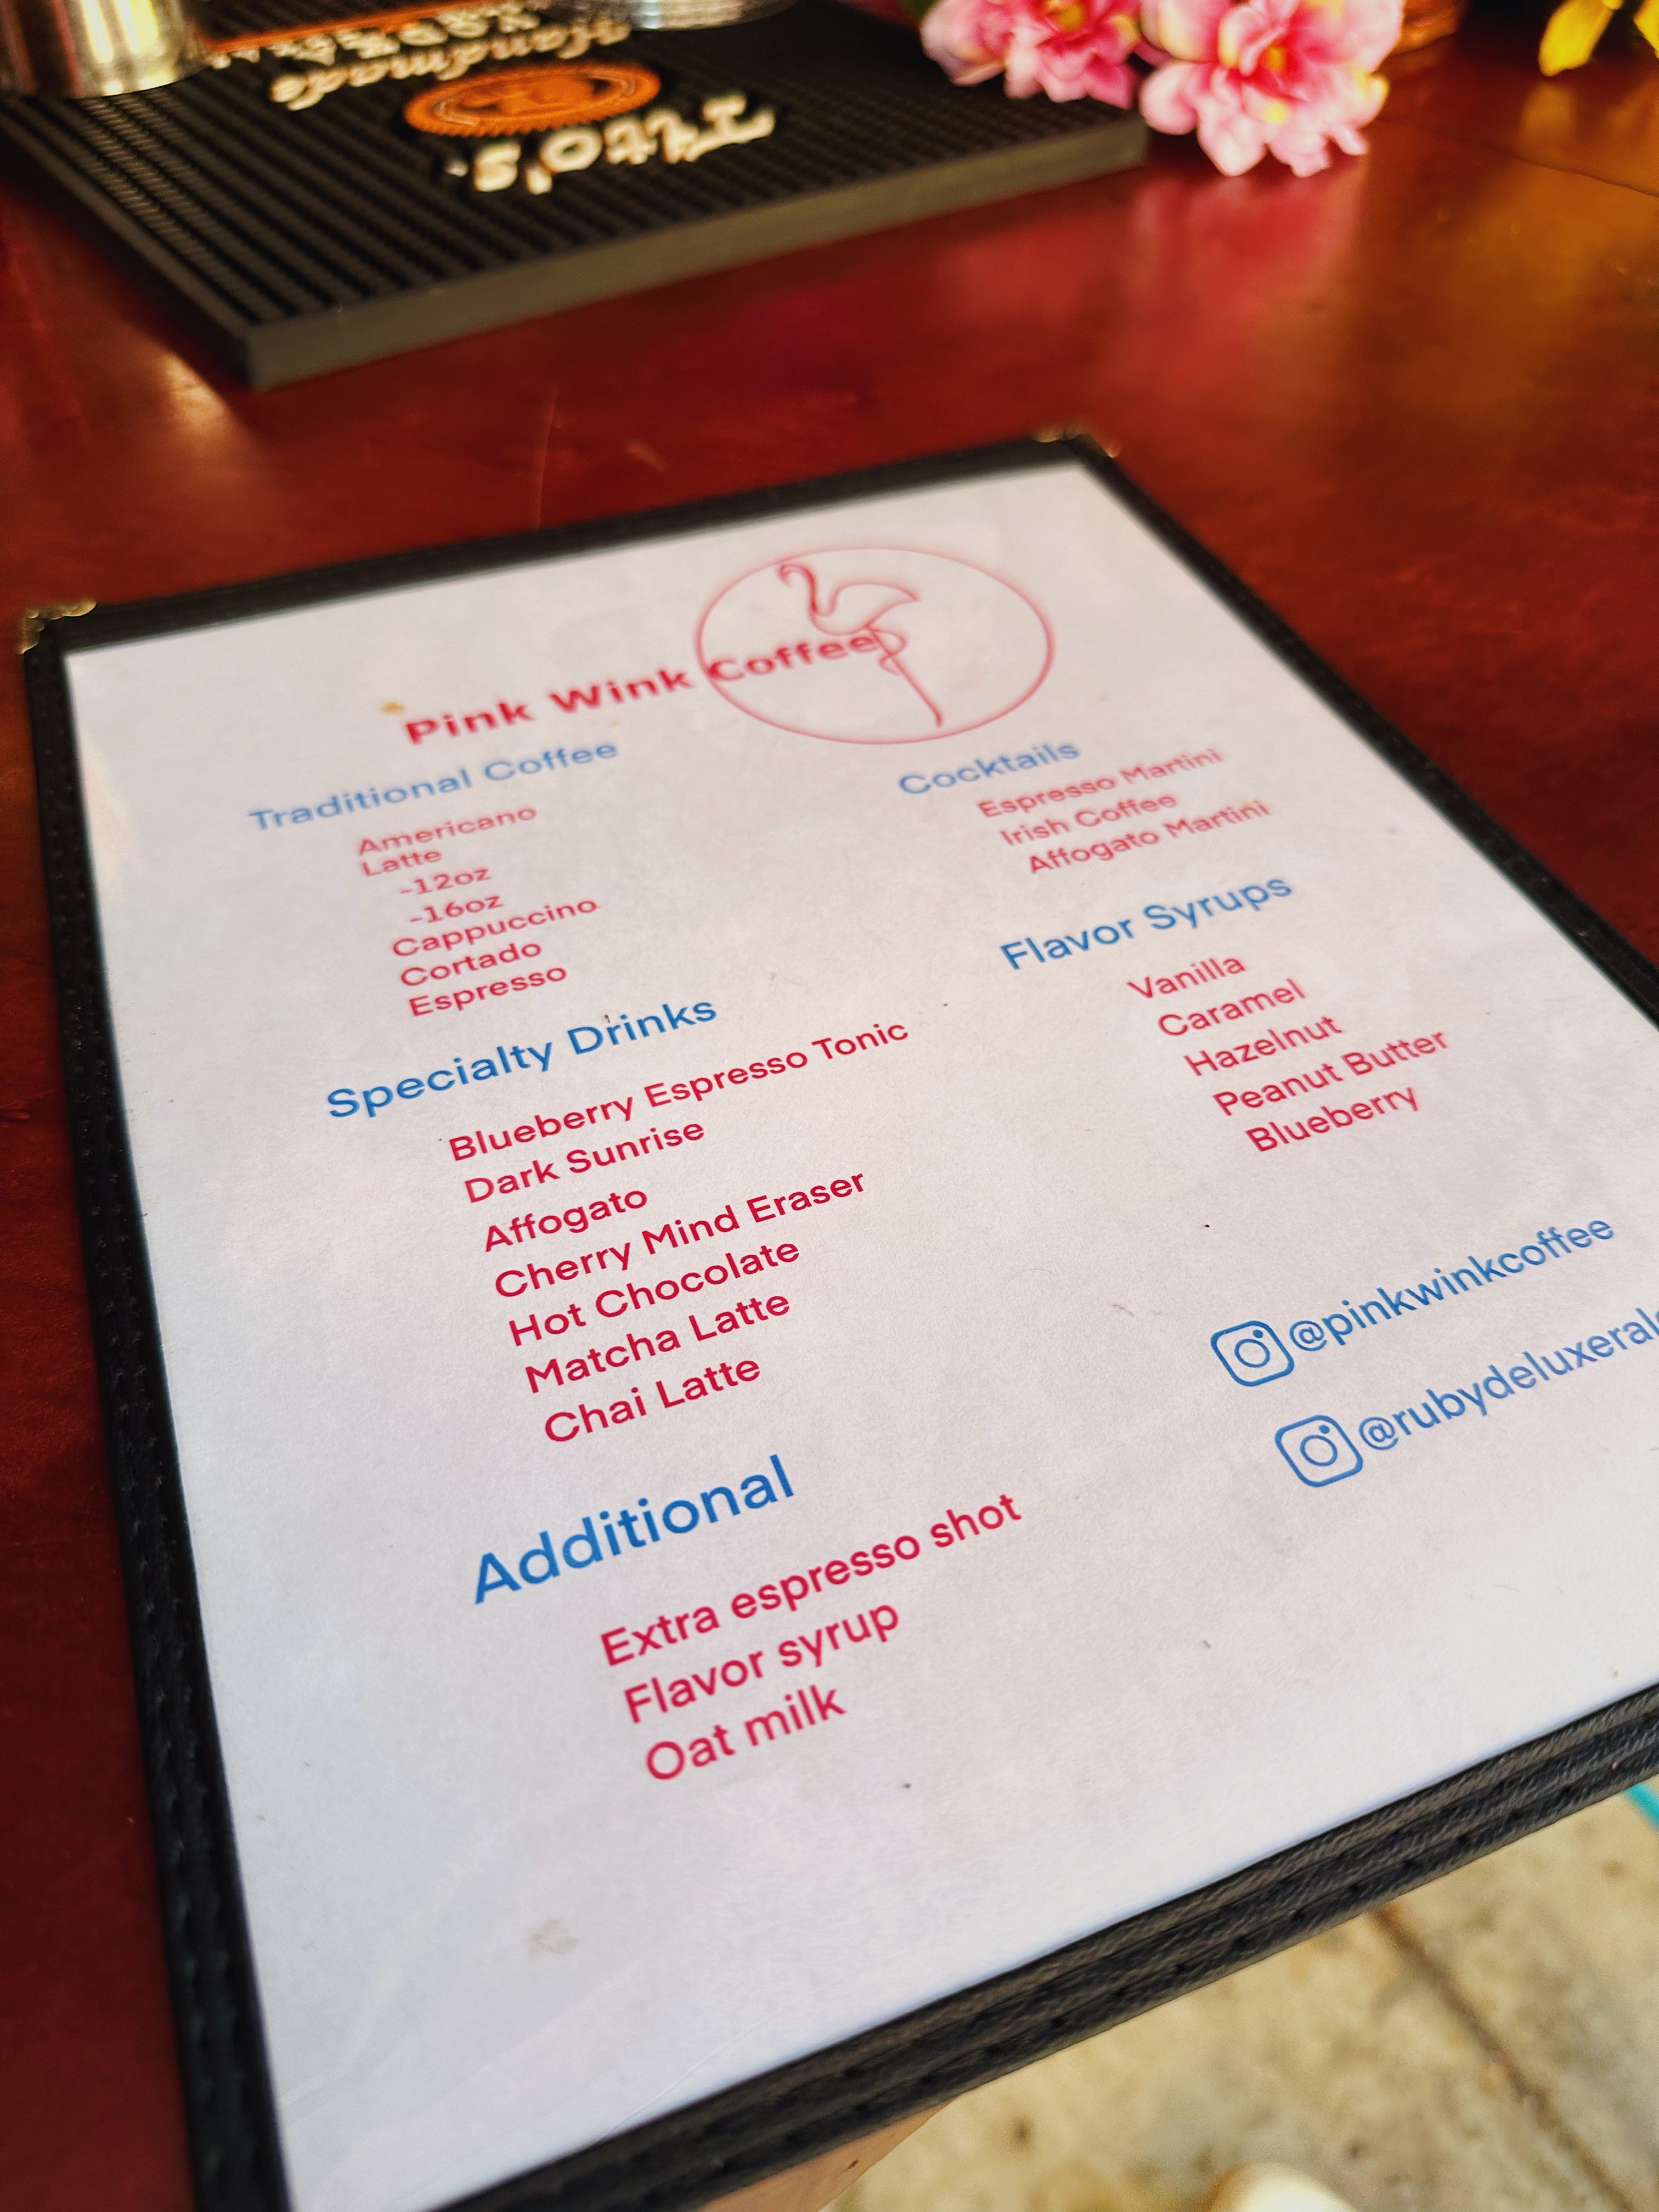 Tito's
Handmade
Pink Wink Coffee
Traditional Coffee
Americano
Latte
-12oz
-16oz
Cappuccino
Cortado
Espresso
Specialty Drinks
Blueberry Espresso Tonic
Dark Sunrise
Affogato
Cherry Mind Eraser
Hot Chocolate
Matcha Latte
Chai Latte
Additional
Extra espresso shot
Flavor syrup
Oat milk
Cocktails
Espresso Martini
Irish Coffee
Affogato Martini
Flavor Syrups
Vanilla
Caramel
Hazelnut
Peanut Butter
Blueberry
@pinkwinkcoffee